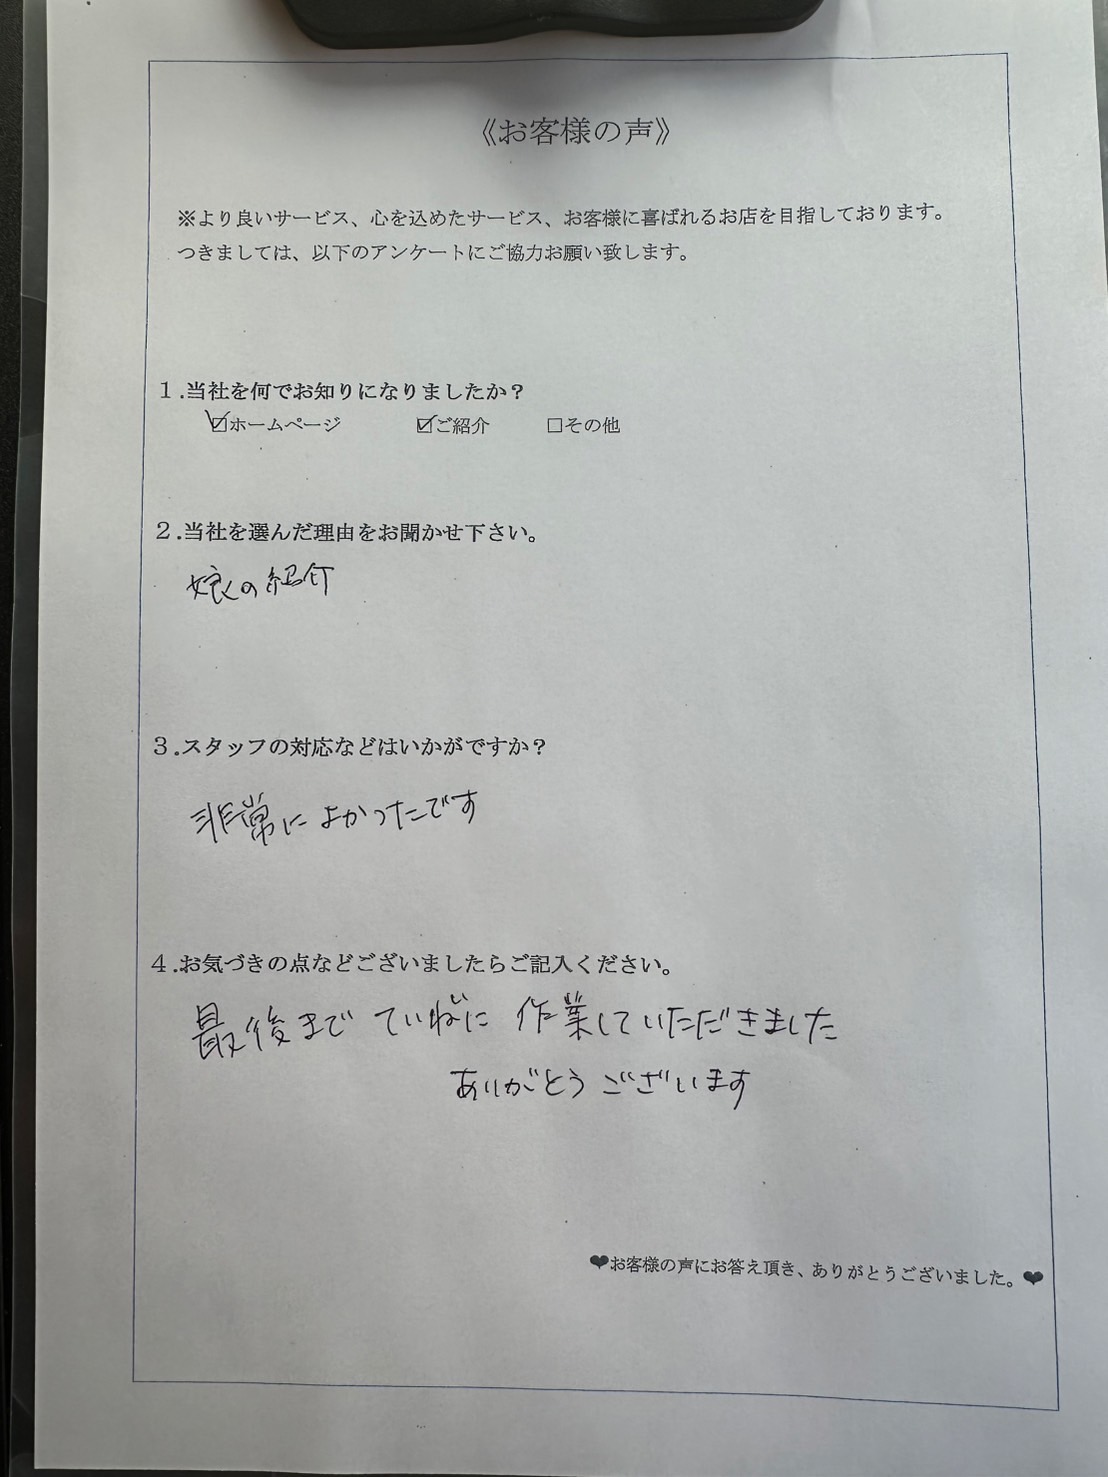 《お客様の声》
※より良いサービス、心を込めたサービス、お客様に喜ばれるお店を目指しております。
つきましては、以下のアンケートにご協力お願い致します。
1.当社を何でお知りになりましたか？
☑ホームページ ☑ご紹介 □その他
2.当社を選んだ理由をお聞かせ下さい。
娘の紹介
3.スタッフの対応などはいかがですか？
非常によかったです
4.お気づきの点などございましたらご記入ください。
最後まで ていねに 作業していただきました
ありがとうございます
❤お客様の声にお答え頂き、ありがとうございました。❤